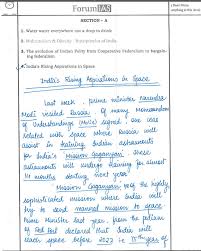 Forum IAS
SECTION - A
1. Water water everywhere not a drop to drink
2. Malnutrition & Obesity :
3. The evolution of Indian Polity from Cooperative Federalism to bargaining federalism.
4. India's Rising Aspirations in Space.
India's Rising Aspirations in Space
Last week, prime minister Narendra
Modi visited Russia. Of many Memorandum
of Understandings (MoUs) signed, one was
related with space where Russia will
assist in training Indian astronauts
for India's Mission Gaganyaan. These
astronauts will undergo training for almost
11 months starting next year.
Mission Gaganyaan is the highly
sophisticated mission where India will
try to send manned mission to space.
Prime Minister last year, from the
of Red Fort declared that India will
reach space before 2022 i.e. 75 years of